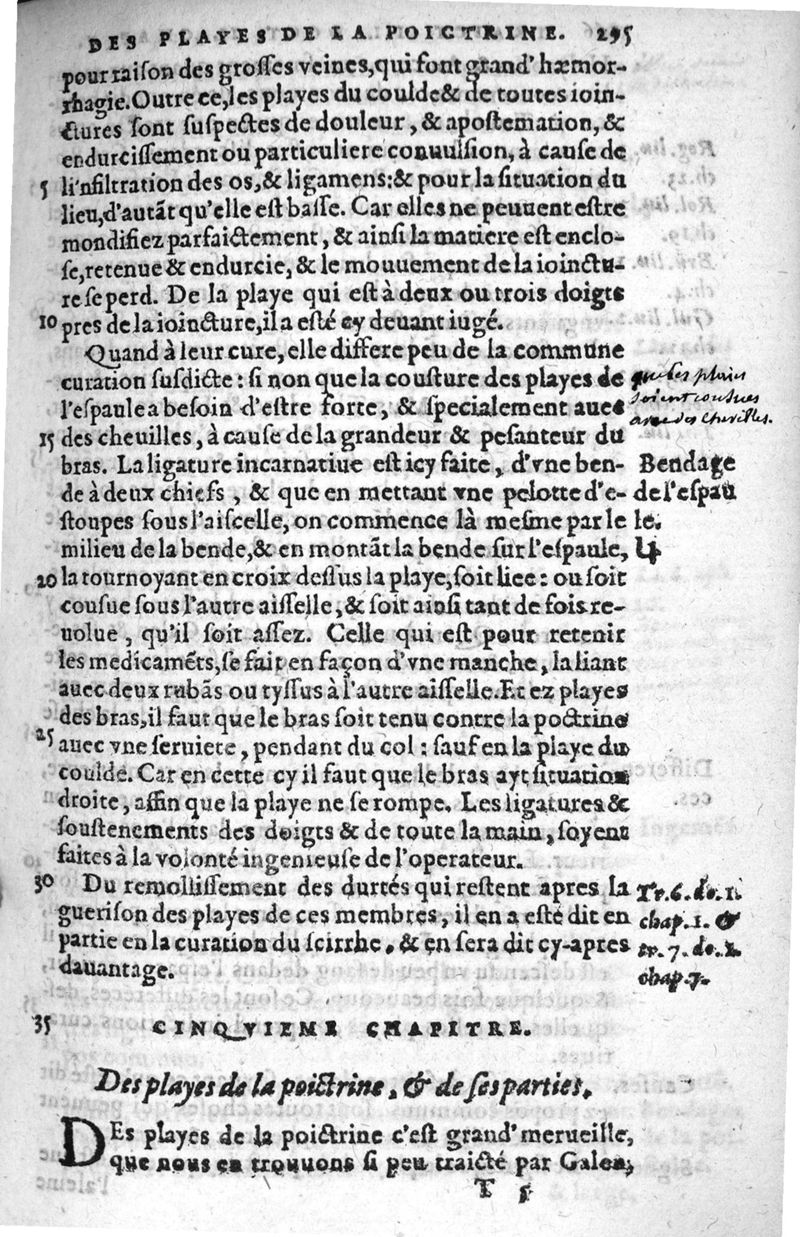 DES PLAYES DE LA POICTRINE. 295
pour raison des grosses veines, qui font grand' hæmor-
rhagie. Outre ce, les playes du coulde & de toutes ioin-
ctures sont suspectes de douleur, & apostemation, &
endurcissement ou particuliere conuulsion, à cause de
5 l'infiltration des os, & ligamens: & pour la situation du
lieu, d'autãt qu'elle est basse. Car elles ne peuuent estre
mondifiez parfaictement, & ainsi la matiere est enclo-
se, retenue & endurcie, & le mouuement de la ioinctu-
re se perd. De la playe qui est à deux ou trois doigts
10 pres de la ioincture, il a esté cy deuant iugé.
Quand à leur cure, elle differe peu de la commune
curation susdicte: si non que la cousture des playes de
l'espaule a besoin d'estre forte, & specialement auec
15 des cheuilles, à cause de la grandeur & pesanteur du
bras. La ligature incarnatiue est icy faite, d'vne ben-
de à deux chiefs, & que en mettant vne pelotte d'e-
stoupes sous l'aiscelle, on commence là mesme par le
milieu de la bende, & en montãt la bende sur l'espaule,
20 la tournoyant en croix dessus la playe, soit liee: ou soit
cousue sous l'autre aisselle, & soit ainsi tant de fois re-
uolue, qu'il soit assez. Celle qui est pour retenir
les medicamẽts, se fait en façon d'vne manche, la liant
auec deux rubãs ou tyssus à l'autre aisselle. Et ez playes
des bras, il faut que le bras soit tenu contre la poctrine
25 auec vne seruiete, pendant du col: sauf en la playe du
coulde. Car en cette cy il faut que le bras ayt situation
droite, affin que la playe ne se rompe. Les ligatures &
soustenements des doigts & de toute la main, soyent
faites à la volonté ingenieuse de l'operateur.
30 Du remollissement des durtés qui restent apres la
guerison des playes de ces membres, il en a esté dit en
partie en la curation du scirrhe, & en sera dit cy-apres
dauantage.
que les plaies
soient cousues
avec des chevilles.
Bendage
de l'espau
le.
4
Tr. 6. do. 1.
chap. 1. &
tr. 7. do. 1.
chap. 7.
35 CINQVIEME CHAPITRE.
Des playes de la poictrine, & de ses parties.
DEs playes de la poictrine c'est grand' merueille,
que nous en trouuons si peu traicté par Galen,
T 5